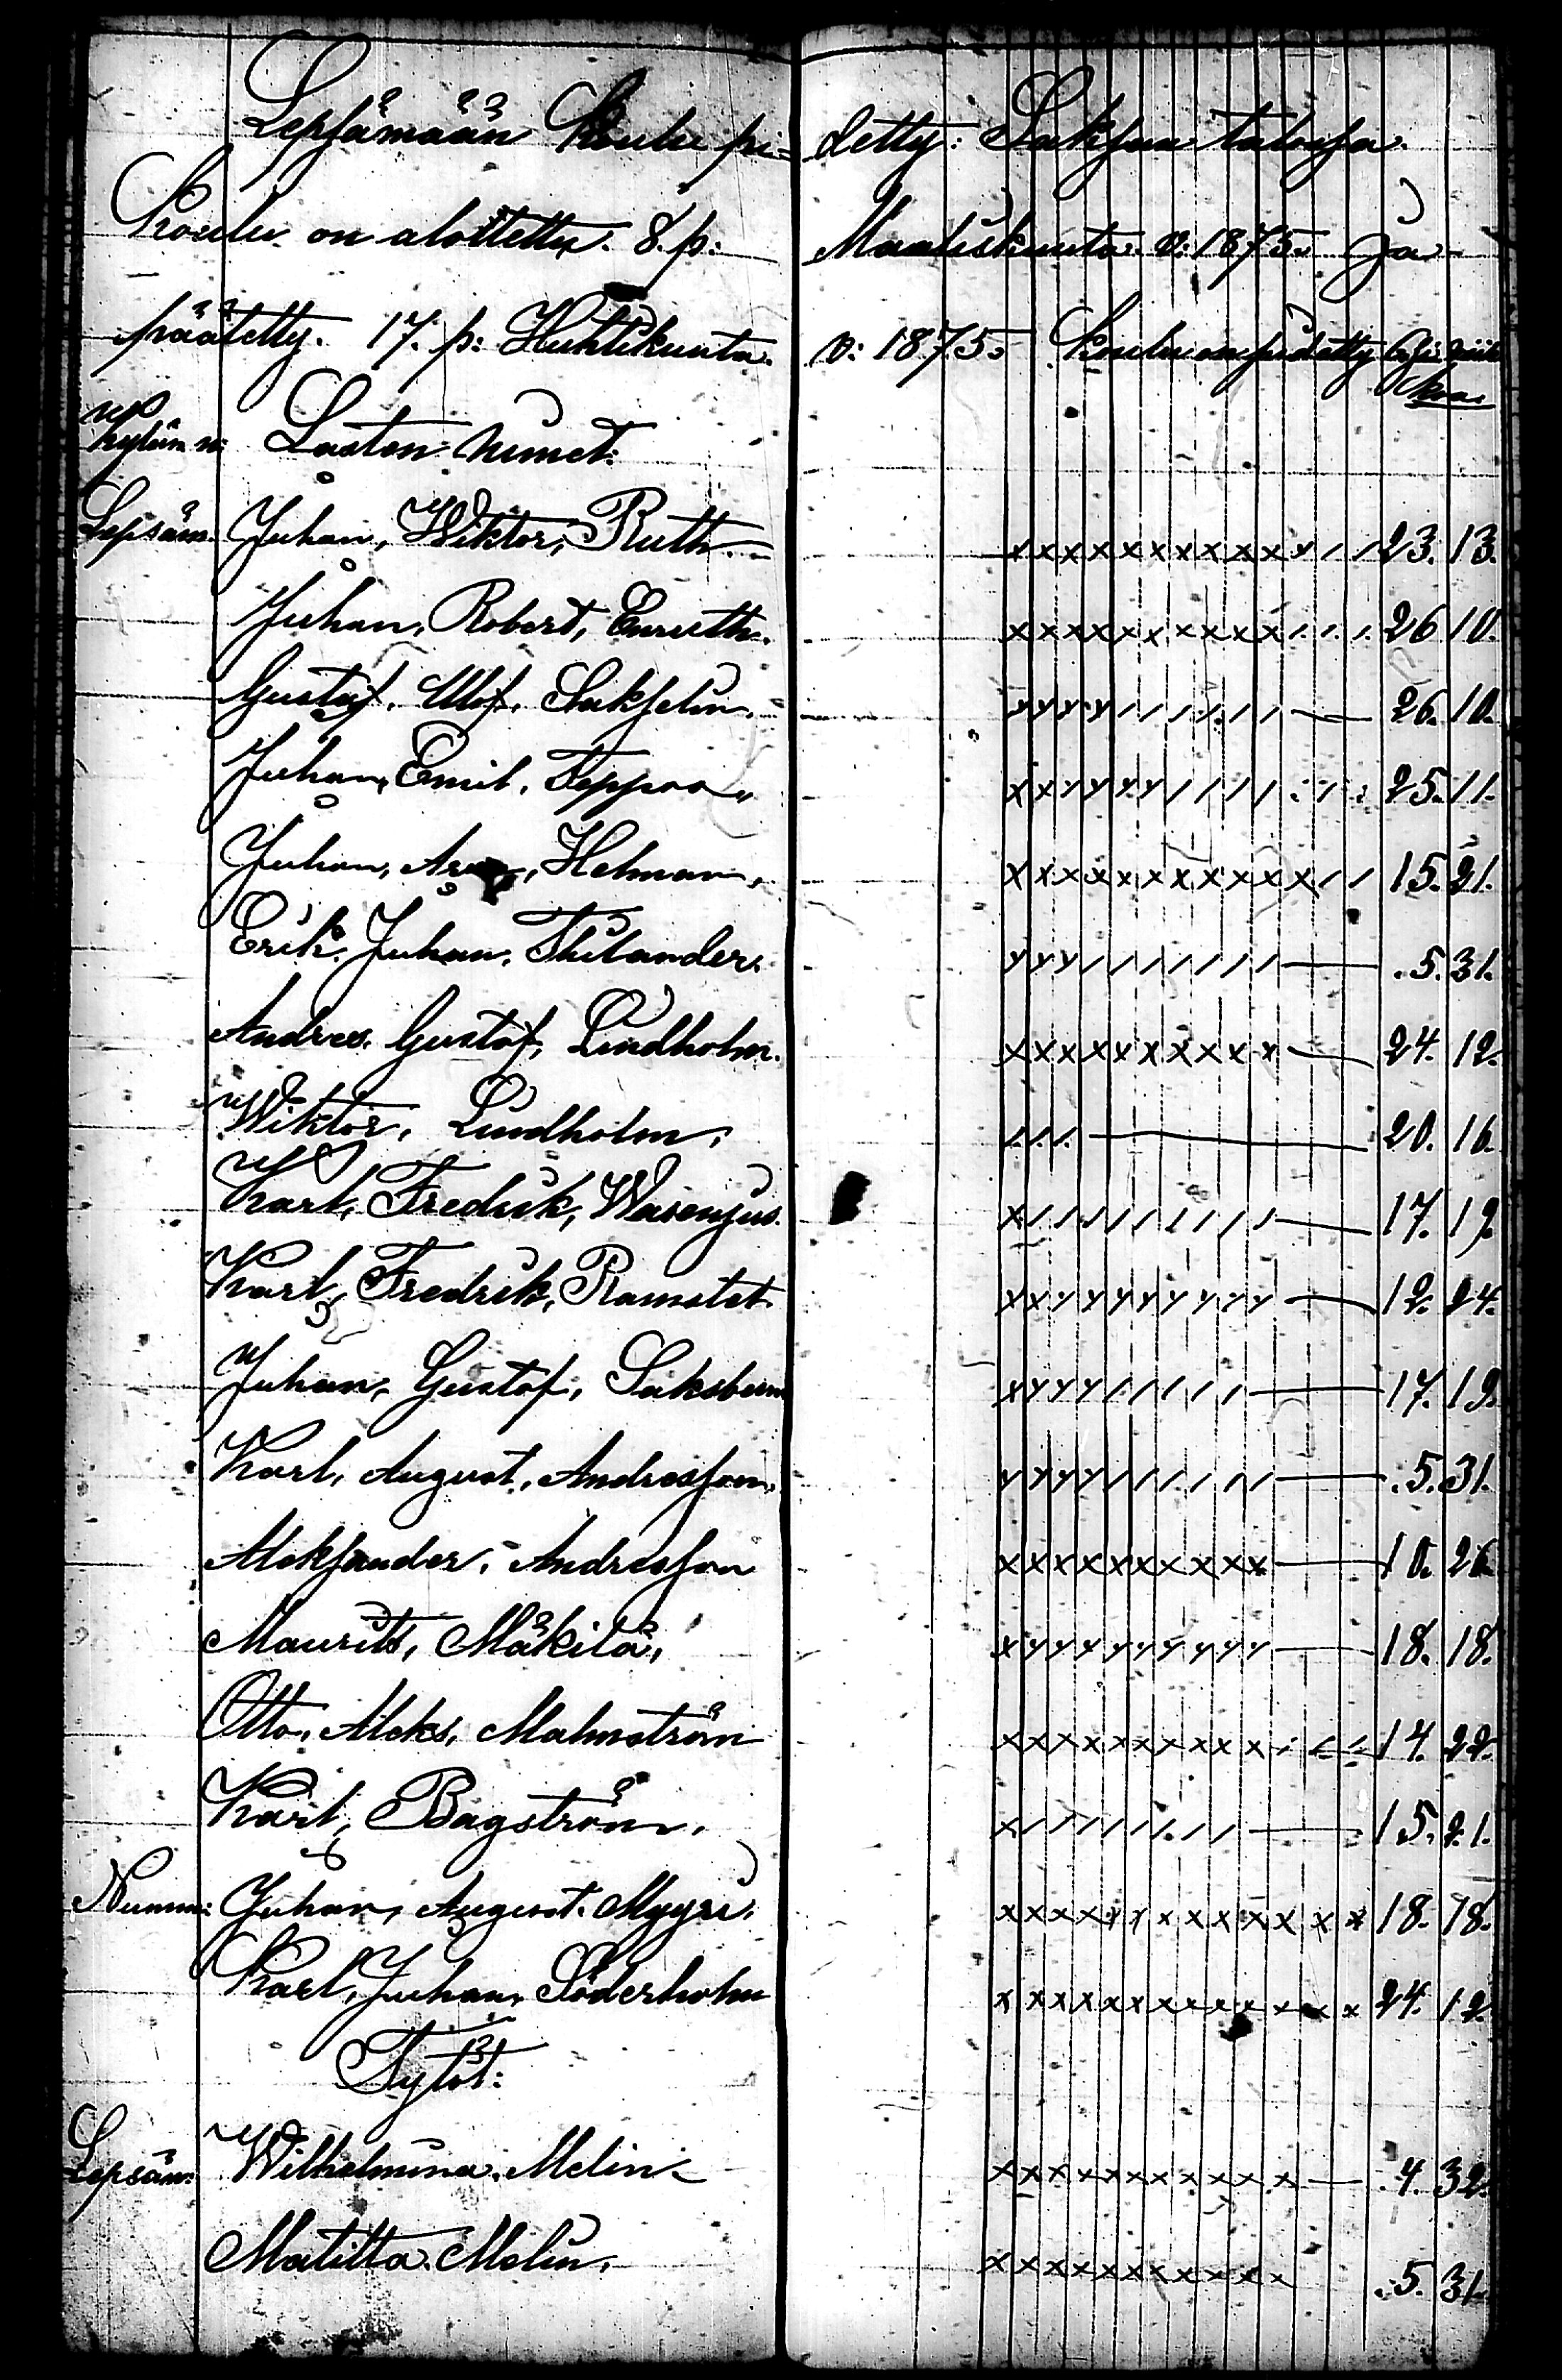 Lepsämään Koulu pi= detty: Saksun talossa.
Koulu on alottettu. 8. p: Maaliskuuta. v: 1875. Ja
päätetty. 17. p: Huhtikuuta. v: 1875. Koulu on pidetty 6si viik
koa.
Kylän n: Lasten nimet:
Lepsäm. Juhan, Wiktor, Ruth. x x x x x x x x x x x / / 23. 13.
Juhan, Robert, Enruth. x x x x x x x x x x / / / 26 10.
Gustaf, Ulof, Sakselin. y y y y / / / / / / — 26. 10.
Juhan, Emil, Seppoo x x y y y y / / / / : / : 25. 11.
Juhan, Helman, x x x x x x x x x x x / / 15. 21.
Erik. Juhan. Thilander. y y y / / / / / / / — 5. 31.
Andres. Gustaf, Lindholm. x x x x x x x x x x — 24. 12.
Wiktor, Lindholm, / / / — 20. 16.
Karl, Fredrik, Wasenjus. x / / / / / / / / / — 17. 19.
Karl, Fredrik, Ramstet x x y y y y y y y y — 12. 24.
Juhan, Gustaf, x y y y / / / / / — 17. 19.
Karl, August, Andresson, y y y y / / / / / / — 5. 31.
Aleksander, Andresson x x x x x x x x x x — 10. 26.
Maurits, Mäkilä, x y y y y y y y y y — 18. 18.
Otto, Aleks, Malmström x x x x x x x x x x / / / 14. 22.
Karl, Bagström, x / / / / / / / / — 15. 21.
Numm: Juhan, August. Myyri. x x x x x x x x x x x x x 18. 18.
Karl, Juhan, Söderholm x x x x x x x x x x x x x 24. 12.
Tytöt:
Lepsäm: Wilhelmina. Melin x x x x x x x x x x x — 4. 32.
Matilta. Melin. x x x x x x x x x x x 5. 31.